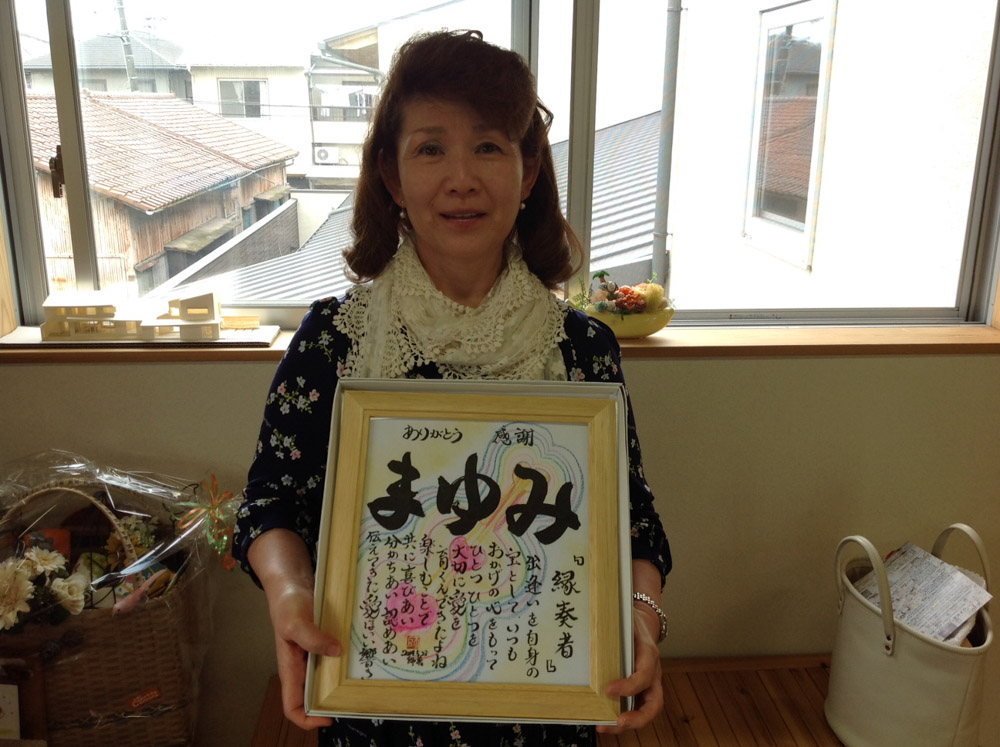 ありがとう 感謝
まゆみ
「縁奏者」
出逢いを自身の
宝として いつも
おかげの心をもって
ひとつひとつを
大切に愛を
育くんできたよね
楽しむことで
共に喜びあい
分かちあい 認めあい
伝えてきた愛はいい響き